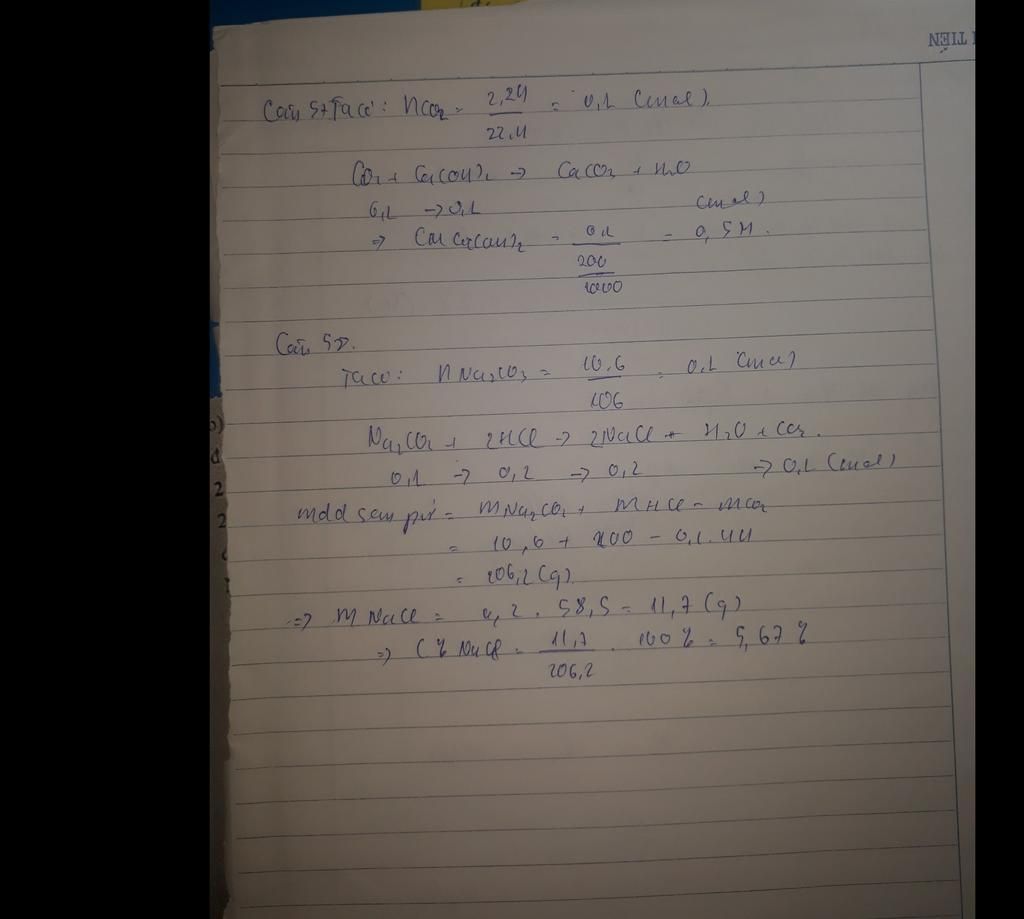 TIẾN
Câu 57 Ta có: nCO2 = 2,24/22,4 = 0,1 (mol)
CO2 + Ca(OH)2 → CaCO3 + H2O
0,1 → 0,1 (mol)
⇒ CM Ca(OH)2 = 0,1/(200/1000) = 0,5M.
Câu 58.
Ta có: n Na2CO3 = 10,6/106 = 0,1 (mol)
Na2CO3 + 2HCl → 2NaCl + H2O + CO2.
0,1 → 0,2 → 0,2 → 0,1 (mol)
mdd sau pứ = mNa2CO3 + mHCl - mCO2
= 10,6 + 200 - 0,1.44
= 206,2 (g)
⇒ m NaCl = 0,2 . 58,5 = 11,7 (g)
⇒ C% NaCl = 11,7/206,2 . 100% = 5,67%